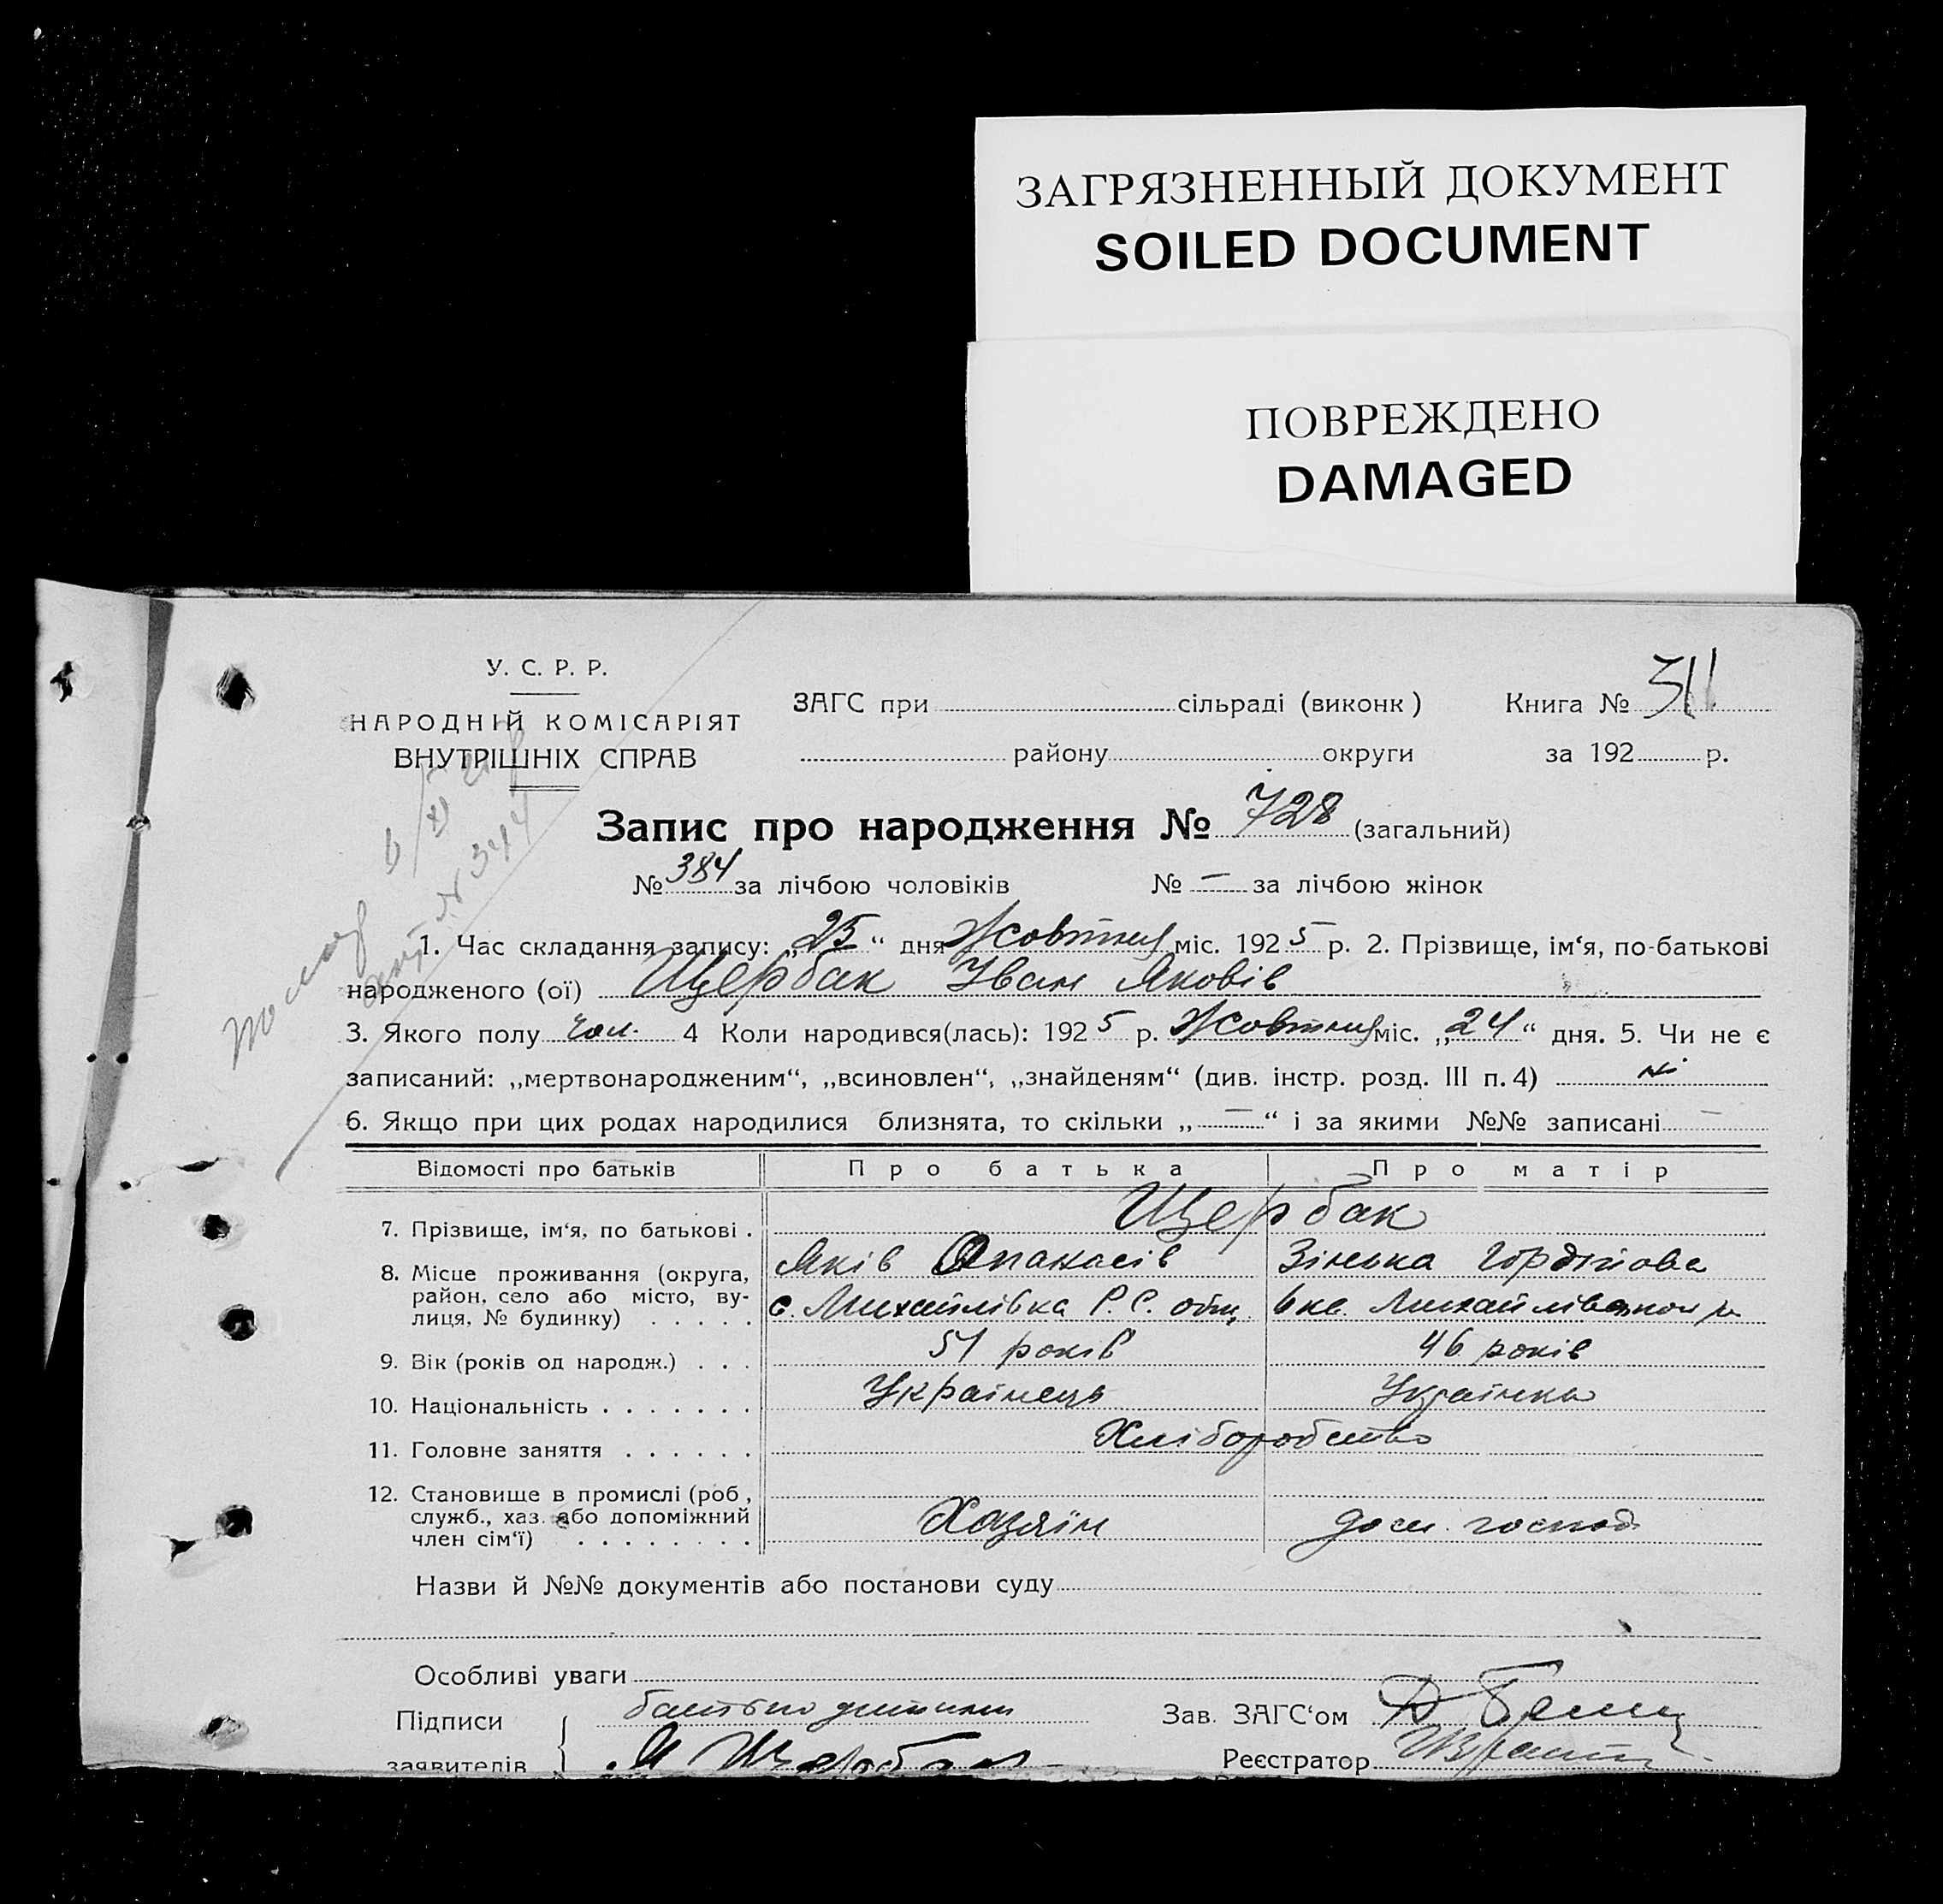 ЗАГРЯЗНЕННЫЙ ДОКУМЕНТ
SOILED DOCUMENT
ПОВРЕЖДЕНО
DAMAGED
У. С. Р. Р.
НАРОДНІЙ КОМІСАРІЯТ
ВНУТРІШНІХ СПРАВ
ЗАГС при сільраді (виконк) Книга №
району округи за 192 р.
Запис про народження № 728 (загальний)
№ 384 за лічбою чоловіків № — за лічбою жінок
1. Час складання запису: „25“ дня Жовтня міс. 1925 р. 2. Прізвище, ім‘я, по-батькові
народженого (ої) Щербак Іван Яковів
3. Якого полу чол. 4 Коли народився(лась): 1925 р. Жовтня міс. „24“ дня. 5. Чи не є
записаний: „мертвонародженим“, „всиновлен“, „знайденям“ (див. інстр. розд. III п. 4) ні
6. Якщо при цих родах народилися близнята, то скільки „—“ і за якими №№ записані —
Відомості про батьків Про батька Про матір
7. Прізвище, ім‘я, по батькові . Щербак
Яків Опанасів Зінька Гордіїова
8. Місце проживання (округа, район, село або місто, вулиця, № будинку) . . . . . с. Михайлівка Р. С.
9. Вік (років од народж.) . . . 51 років 46 років
10. Національність . . . . . . . Українець Українка
11. Головне заняття . . . . . . Хліборобство
12. Становище в промислі (роб, служб., хаз. або допоміжний член сім‘ї) . . . . . . . . Хазяїн дом. господ.
Назви й №№ документів або постанови суду
Особливі уваги
Підписи батько дитини Зав. ЗАГС‘ом
заявителів Я Щербак Реєстратор